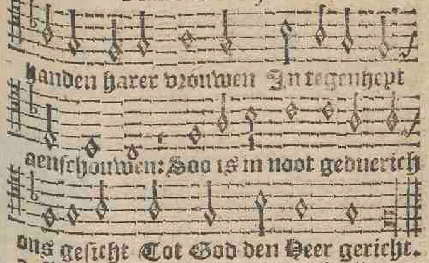 handen harer vrouwen In tegenheyt
aenschouwen: Soo is in noot geduerich
ons gesicht Tot God den Heer gericht.